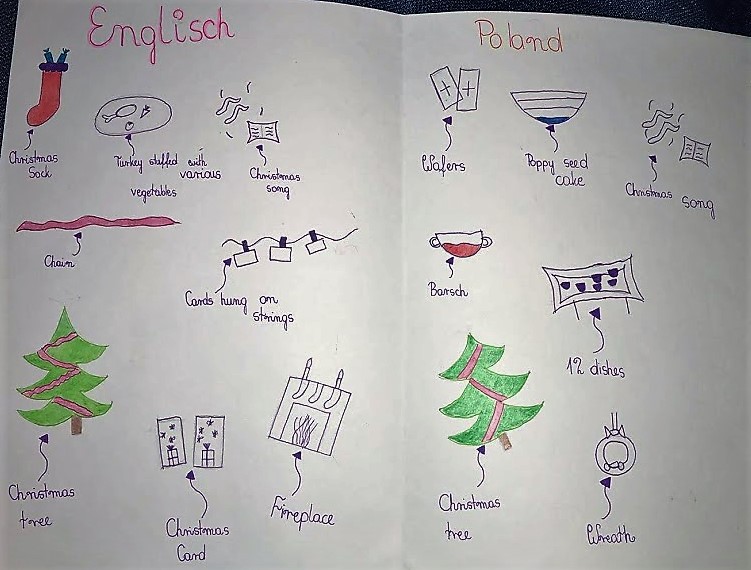 Englisch
Christmas
Sock
Turkey stuffed with
various
vegetables
Christmas
song
Chain
Cards hung on
strings
Christmas
tree
Christmas
Card
Fireplace
Poland
Wafers
Poppy seed
cake
Christmas
song
Barsch
12 dishes
Christmas
tree
Wreath